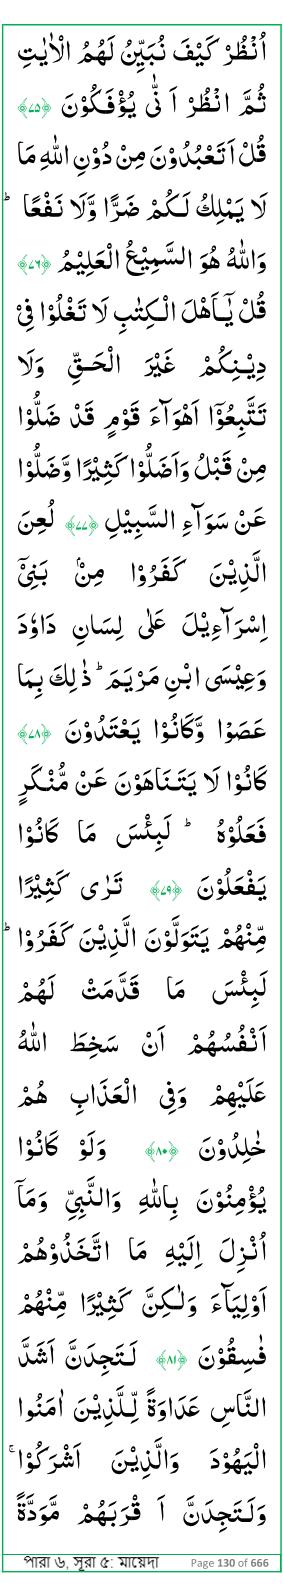 اُنْظُرْ كَيْفَ نُبَيِّنُ لَهُمُ الْاٰيٰتِ
ثُمَّ انْظُرْ اَنّٰى يُؤْفَكُوْنَ ﴿۷۵﴾
قُلْ اَتَعْبُدُوْنَ مِنْ دُوْنِ اللّٰهِ مَا
لَا يَمْلِكُ لَـكُمْ ضَرًّا وَّلَا نَفْعًا ؕ
وَاللّٰهُ هُوَ السَّمِيْعُ الْعَلِيْمُ ﴿۷۶﴾
قُلْ يٰۤـاَهْلَ الْـكِتٰبِ لَا تَغْلُوْا فِىْ
دِيْـنِكُمْ غَيْرَ الْحَـقِّ وَلَا
تَتَّبِعُوْۤا اَهْوَآءَ قَوْمٍ قَدْ ضَلُّوْا
مِنْ قَبْلُ وَاَضَلُّوْا كَثِيْرًا وَّضَلُّوْا
عَنْ سَوَآءِ السَّبِيْلِ ﴿۷۷﴾ لُعِنَ
الَّذِيْنَ كَفَرُوْا مِنْۢ بَنِىْۤ
اِسْرَآءِيْلَ عَلٰى لِسَانِ دَاوٗدَ
وَعِيْسَى ابْنِ مَرْيَمَ ؕ ذٰ لِكَ بِمَا
عَصَوْا وَّكَانُوْا يَعْتَدُوْنَ ﴿۷۸﴾
كَانُوْا لَا يَتَـنَاهَوْنَ عَنْ مُّنْكَرٍ
فَعَلُوْهُ ؕ لَبِئْسَ مَا كَانُوْا
يَفْعَلُوْنَ ﴿۷۹﴾ تَرٰى كَثِيْرًا
مِّنْهُمْ يَتَوَلَّوْنَ الَّذِيْنَ كَفَرُوْا ؕ
لَبِئْسَ مَا قَدَّمَتْ لَهُمْ
اَنْفُسُهُمْ اَنْ سَخِطَ اللّٰهُ
عَلَيْهِمْ وَفِى الْعَذَابِ هُمْ
خٰلِدُوْنَ ﴿۸۰﴾ وَلَوْ كَانُوْا
يُؤْمِنُوْنَ بِاللّٰهِ وَالنَّبِىِّ وَمَاۤ
اُنْزِلَ اِلَيْهِ مَا اتَّخَذُوْهُمْ
اَوْلِيَآءَ وَلٰـكِنَّ كَثِيْرًا مِّنْهُمْ
فٰسِقُوْنَ ﴿۸۱﴾ لَـتَجِدَنَّ اَشَدَّ
النَّاسِ عَدَاوَةً لِّـلَّذِيْنَ اٰمَنُوا
الْيَهُوْدَ وَالَّذِيْنَ اَشْرَكُوْا ۚ
وَلَـتَجِدَنَّ اَ قْرَبَهُمْ مَّوَدَّةً
পারা ৬, সূরা ৫: মায়েদা Page 130 of 666